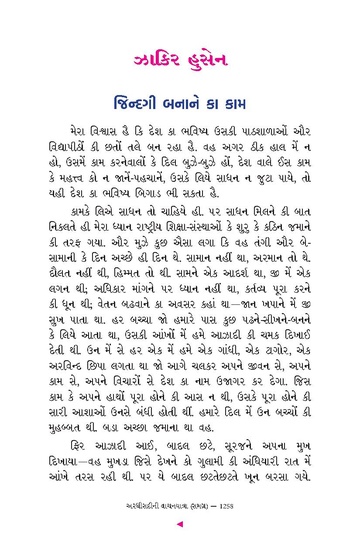 ઝાકિર હુસેન
જિન્દગી બનાને કા કામ
મેરા વિશ્વાસ હૈ કિ દેશ કા ભવિષ્ય ઉસકી પાઠશાળાઓં ઔર
વિદ્યાપીઠોં કી છતોં તલે બન રહા હૈ. વહ અગર ઠીક હાલ મેં ન
હો, ઉસમેં કામ કરનેવાલોં કે દિલ બુઝે-બુઝે હોં, દેશ વાલે ઈસ કામ
કે મહત્ત્વ કો ન જાનેં-પહચાનેં, ઉસકે લિયે સાધન ન જુટા પાયે, તો
યહી દેશ કા ભવિષ્ય બિગાડ ભી સકતા હૈ.
કામકે લિએ સાધન તો ચાહિયે હી. પર સાધન મિલને કી બાત
નિકલતે હી મેરા ધ્યાન રાષ્ટ્રીય શિક્ષા-સંસ્થાઓં કે શુરૂ કે કઠિન જમાને
કી તરફ ગયા. ઔર મુઝે કુછ ઐસા લગા કિ વહ તંગી ઔર બે-
સામાની કે દિન અચ્છે હી દિન થે. સામાન નહીં થા, અરમાન તો થે.
દૌલત નહીં થી, હિમ્મત તો થી. સામને એક આદર્શ થા, જી મેં એક
લગન થી; અધિકાર માંગને પર ધ્યાન નહીં થા, કર્તવ્ય પૂરા કરને
કી ધૂન થી; વેતન બઢવાને કા અવસર કહાં થા—જાન ખપાને મેં જી
સુખ પાતા થા. હર બચ્ચા જો હમારે પાસ કુછ પઢને-સીખને-બનને
કે લિયે આતા થા, ઉસકી આંખોં મેં હમે આઝાદી કી ચમક દિખાઈ
દેતી થી. ઉન મેં સે હર એક મેં હમે એક ગાંધી, એક ટાગોર, એક
અરવિન્દ છિપા લગતા થા જો આગે ચલકર અપને જીવન સે, અપને
કામ સે, અપને વિચારોં સે દેશ કા નામ ઉજાગર કર દેગા. જિસ
કામ કે અપને હાથોં પૂરા હોને કી આસ ન થી, ઉસકે પૂરા હોને કી
સારી આશાઓં ઉનસે બંધી હોતી થીં. હમારે દિલ મેં ઉન બચ્ચોં કી
મુહબ્બત થી. બડા અચ્છા જમાના થા વહ.
ફિર આઝાદી આઈ, બાદલ છટે, સૂરજને અપના મુખ
દિખાયા—વહ મુખડા જિસે દેખને કો ગુલામી કી અંધિયારી રાત મેં
આંખે તરસ રહી થી. પર યે બાદલ છટતેછટતે ખૂન બરસા ગયે.
અરધીસદીની વાચનયાત્રા (સમગ્ર) — 1258